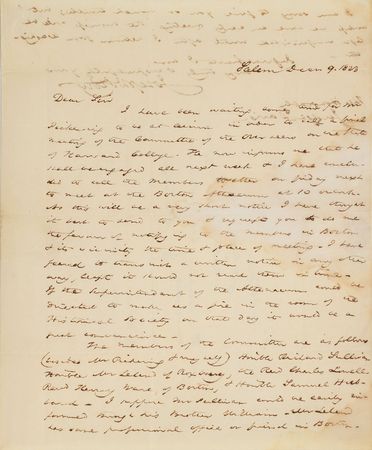 Salem Decm 9. 1823
Dear Sir
I have been waiting some for Mr
Pickering to be at leisure in order to call a
meeting of the Committee of the Overseers on the State
of Harvard College. He now informs me that he
shall be engaged all next week & I have conclu-
ded to call the members together on friday next
to meet at the Boston Athenaeum at 10 o'clock.
As this will be a very short notice I have thought
it best to send to you & request you to do me
the favour of notifying to the members in Boston
& its vicinity the time & place of meeting. I have
feared to transmit a written notice in any other
way lest it should not reach them in time.
If the Superintendant of the Athenaeum could be
directed to make us a fire in the room of the
Historical Society on that day it would be a
great convenience.
The members of the Committee are as follows
(besides Mr Pickering & myself) Honble Richard Sullivan
Honble Mr of Roxbury, the Revd Charles Lowell
Revd Henry Ware of Boston, & Honble Samuel Hub-
bard. I suppose Mr Sullivan could be easily in-
formed through his brother William. Mr
has some professional office or friend in Boston.